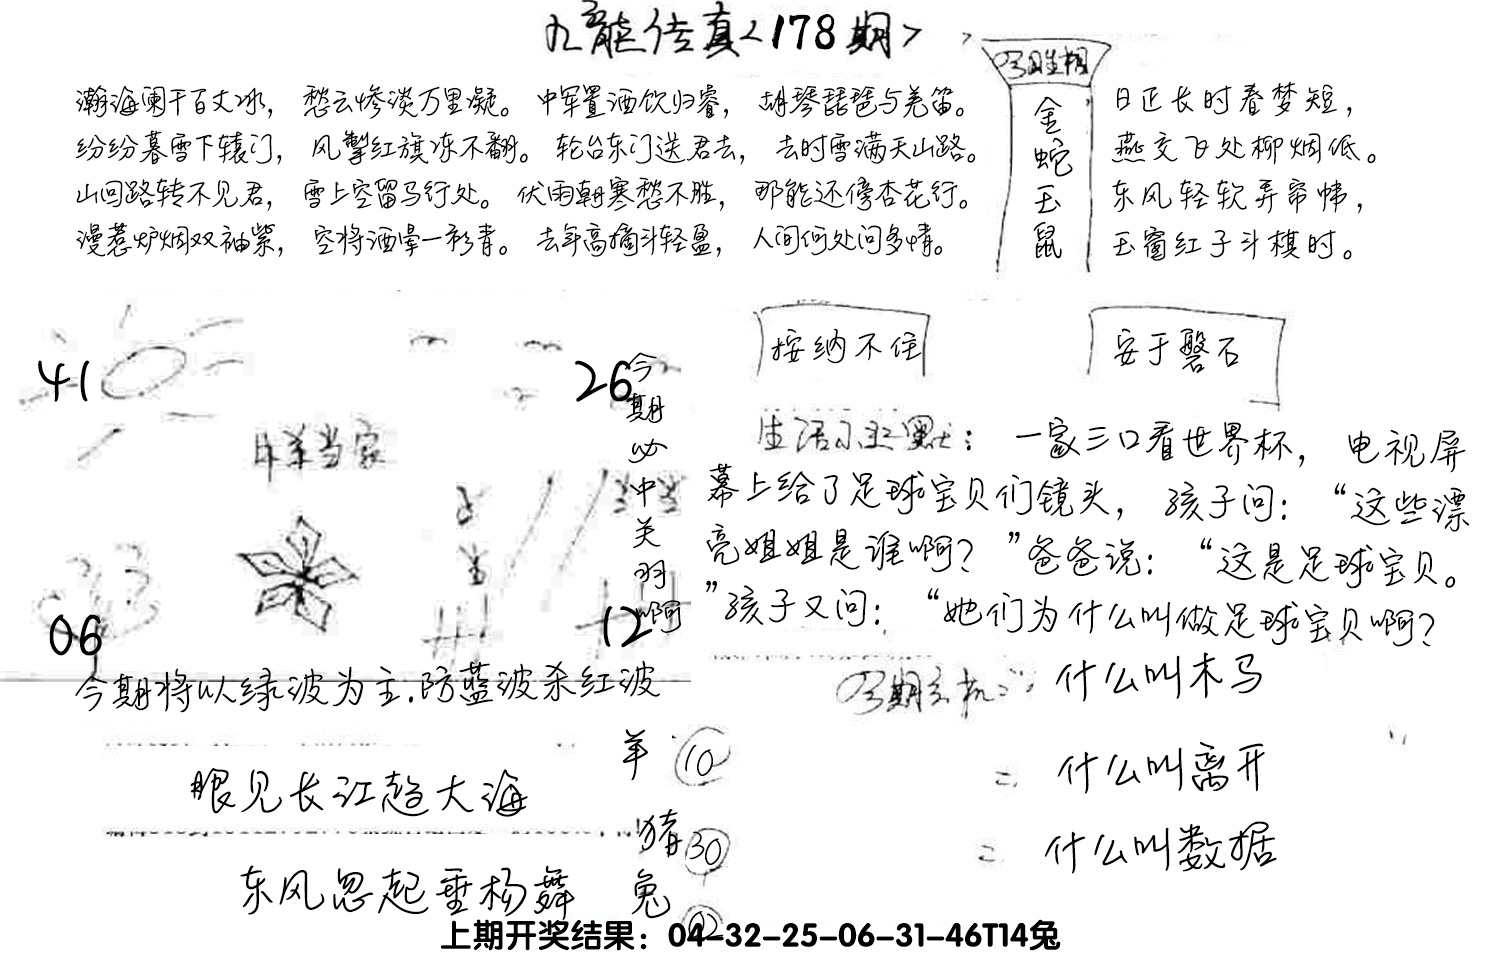 九龙传真<178期>
瀚海阑干百丈冰，愁云惨淡万里凝。中军置酒饮归客，胡琴琵琶与羌笛。
纷纷暮雪下辕门，风掣红旗冻不翻。轮台东门送君去，去时雪满天山路。
山回路转不见君，雪上空留马行处。伏雨朝寒愁不胜，那能还傍杏花行。
漫惹炉烟双袖紫，空将酒晕一衫青。去年高摘斗轻盈，人间何处问多情。
今日生相
金蛇玉鼠
日正长时春梦短，
燕交飞处柳烟低。
东风轻软弄帘帏，
玉窗红子斗棋时。
41
26
06
12
今期必中关羽啊
今期将以绿波为主.防蓝波杀红波
按纳不住
安于磐石
生活小幽默：一家三口看世界杯，电视屏
幕上给了足球宝贝们镜头，孩子问：“这些漂
亮姐姐是谁啊？”爸爸说：“这是足球宝贝。
”孩子又问：“她们为什么叫做足球宝贝啊？
今期玄机：什么叫木马
= 什么叫离开
= 什么叫数据
眼见长江趋大海
东风忽起垂杨舞
羊 10
猪 30
兔 02
上期开奖结果：04-32-25-06-31-46T14兔